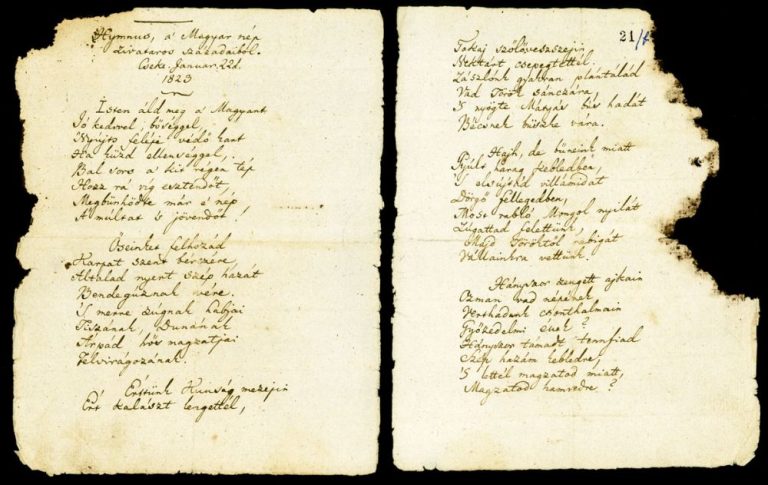 Hymnus, a' Magyar nép
zivataros századaiból.
Cseke. Január. 22d.
1823
Isten áldd meg a' Magyart
Jó kedvvel, bőséggel,
Nyújts feléje védő kart
Ha küzd ellenséggel;
Bal sors a' kit régen tép
Hozz rá víg esztendőt,
Megbűnhődte már e' nép
A' múltat 's jövendőt!
Őseinket felhozád
Kárpát szent bérczére,
Általad nyert szép hazát
Bendegúznak vére.
'S merre zúgnak habjai
Tiszának, Dunának
Árpád hős magzatjai
Felvirágozának.
Értünk Kunság mezején
Ért kalászt lengettél,
21/f
Tokaj szőlővesszején
Nektárt csepegtettél.
Zászlónk gyakran plántálád
Vad Török sánczára,
'S nyögte Mátyás bús hadát
Bécsnek büszke vára.
Hajh, de bűneink miatt
Gyúlt harag kebledben,
'S elsújtád villámidat
Dörgő fellegedben,
Most rabló Mongol nyilát
Zúgattad felettünk,
Majd Töröktől rabigát
Vállainkra vettünk.
Hányszor zengett ajkain
Ozman vad népének
Vert hadunk csonthalmain
Győzedelmi ének?
Hányszor támadt tenfiad
Szép hazám kebledre,
'S lettél magzatod miatt,
Magzatod hamvedre?